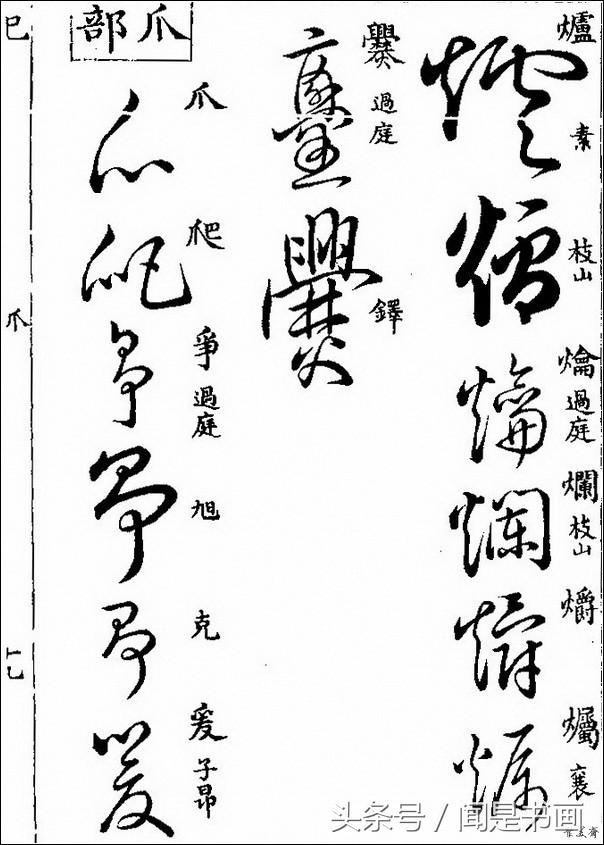 爐
素
枝山
爚
過庭
爛
枝山
爝
爥
襄
爨
過庭
鐸
爪部
爪
爬
爭
過庭
旭
克
爰
子昂
巳
爪
头条号 / 闻是书画